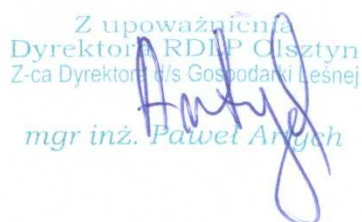 Z upoważnienia
Dyrektora RDLP Olsztyn
Z-ca Dyrektora d/s Gospodarki Leśnej
mgr inż. Paweł Artych